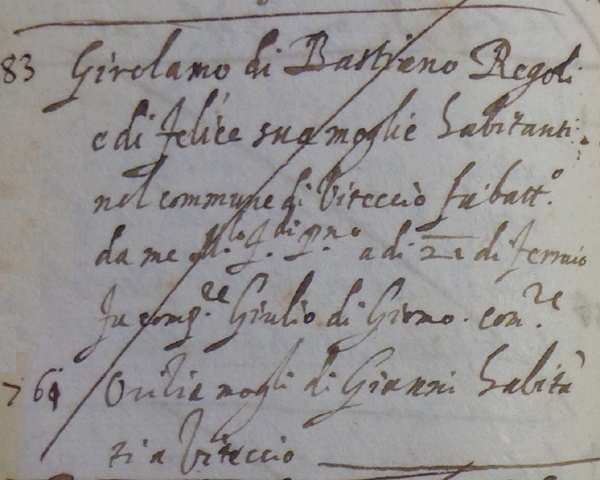 83 Girolamo di Bastiano Regoli
e di felice sua moglie habitanti
nel commune di Viteccio fu batt.º
da me a di 21 di ferraio
fu comp.re Giulio di Girmo. com.re
Orilia mogli di Gianni habitā
ti a Viteccio